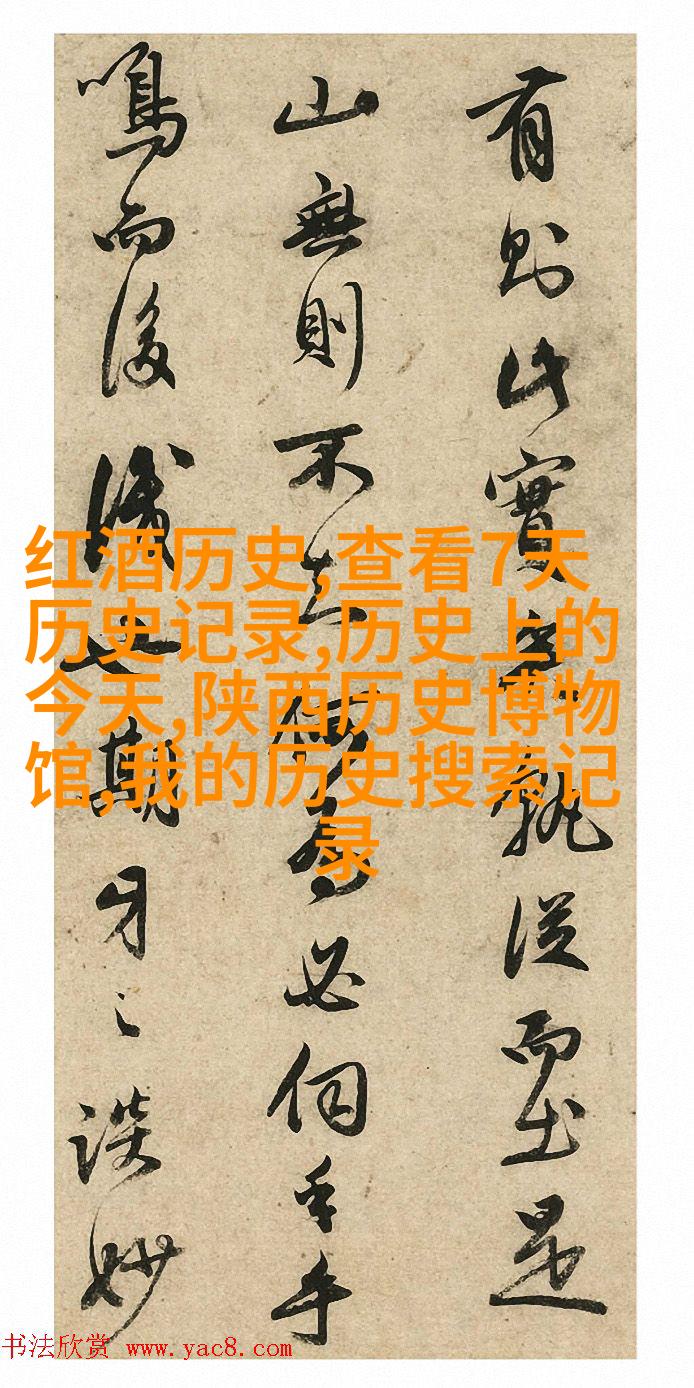 有則此實無孰從而出是
山無則不去何為必伺手手
鳴而後識也期牙之談妙
红酒历史,查看7天
历史记录,历史上的
今天,陕西历史博物
馆,我的历史搜索记
录
书法欣赏 www.yac8.com